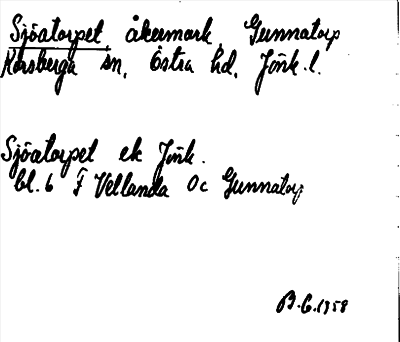 Sjöatorpet, åkermark, Gunnatorp
Korsberga sn, Östra hd, Jönk. l.
Sjöatorpet ek Jönk.
bl. 6 F Vellanda Oc Gunnatorp
B.G. 1958